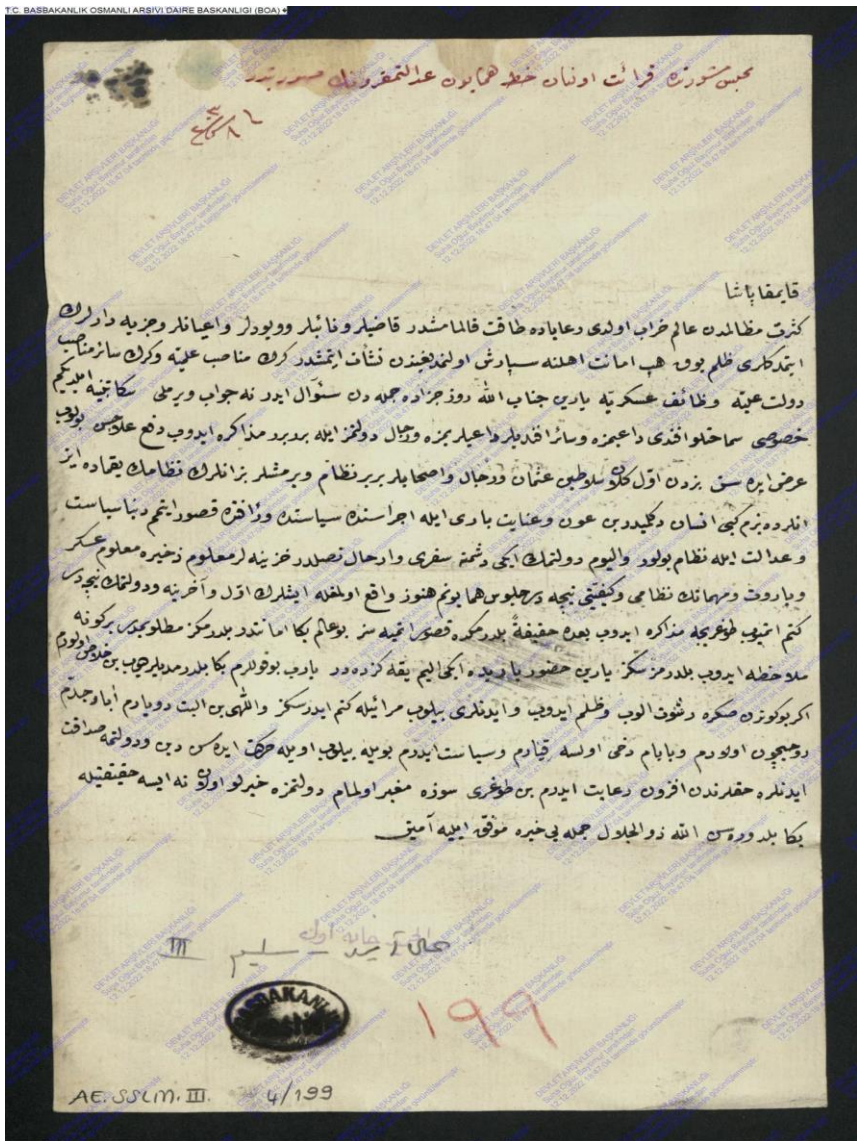 T.C. BASBAKANLIK OSMANLI ARSIVI DAIRE BASKANLIGI (BOA)
مجلس شوراده قرائت اولنان خط همايون عدالتمقرونك صورتيدر
قايمقام پاشا
كثرت مظالمدن عالم خراب اولدى رعاياده طاقت قالمامشدر قاضيلر و نائبلر وويوودلر واعيانلر وجزيه دارلرك
ايتدكلرى ظلم يوق هب امانت اهلنه سپارش اولنمديغندن نشأت ايتمشدر كرك مناصب علميه وكرك سائر مناصب
دولت عليه وظائف عسكريه يارين جناب الله روز جزاده جمله دن سئوال ايدر نه جواب ويرملى
خصوصى سماحتلو افندى داعيمزه وسائر افنديلر داعيلريمزه ورجال دولتمز ايله برر برر مذاكره ايدوب دفع علاجنى بولوب
عرض ايده سن بزدن اول كلان سلاطين عثمان ورجال واصحابلر برر نظام ويرمشلر بز انلرك نظامنك
انلرده بزم كبى انسان دكلميدر بن عون وعنايت بارى ايله اجراسنده سياستده وزافتده قصور ايتمم دنيا سياست
وعدالت ايله نظام بولور واليوم دولتمك ايكى دشمنه سفرى وار حال نصلدر خزينه لر معلوم ذخيره معلوم عسكر
وباروت ومهماتك نظامى وكيفيتى نيجه در جلوس همايونم هنوز واقع اولمغله ايشلرك اول وآخرينه ودولتمك نيجه در
كتم اتميوب طوغريجه مذاكره ايدوب بعده حقيقة بلدرمكده قصور اتميه سز بو عالم بكا امانتدر بلدرمكز مطلوبمدر بر كونه
ملاحظه ايدوب بلدرمز سكز يارين حضور باريده ايكى اليم يقه كزده در يارب بو قوللرم بكا بلدرمديلر ديوب بن خلاص اولورم
اكر بو كوندن صكره رشوت الوب وظلم ايدوب وايدنلرى بيلوب مرائيله كتم ايدرسكز واللهى بن البت دويارم آباء وجدم
روحيچون اولادم وبابام دخى اولسه قيارم وسياست ايدرم بويله بيلوب اويله حركت ايده سن دين ودولتمه صداقت
ايدنلره حقلرندن افزون رعايت ايدرم بن طوغرى سوزه مغبر اولمام دولتمزه خيرلو اولان نه ايسه حقيقتيله
بكا بلدوره سن الله ذو الجلال جمله يى خيره موفق ايليه آمين
سليم III
BASBAKANLIK
۱۹۹
AE. SSLM. III. 4/199